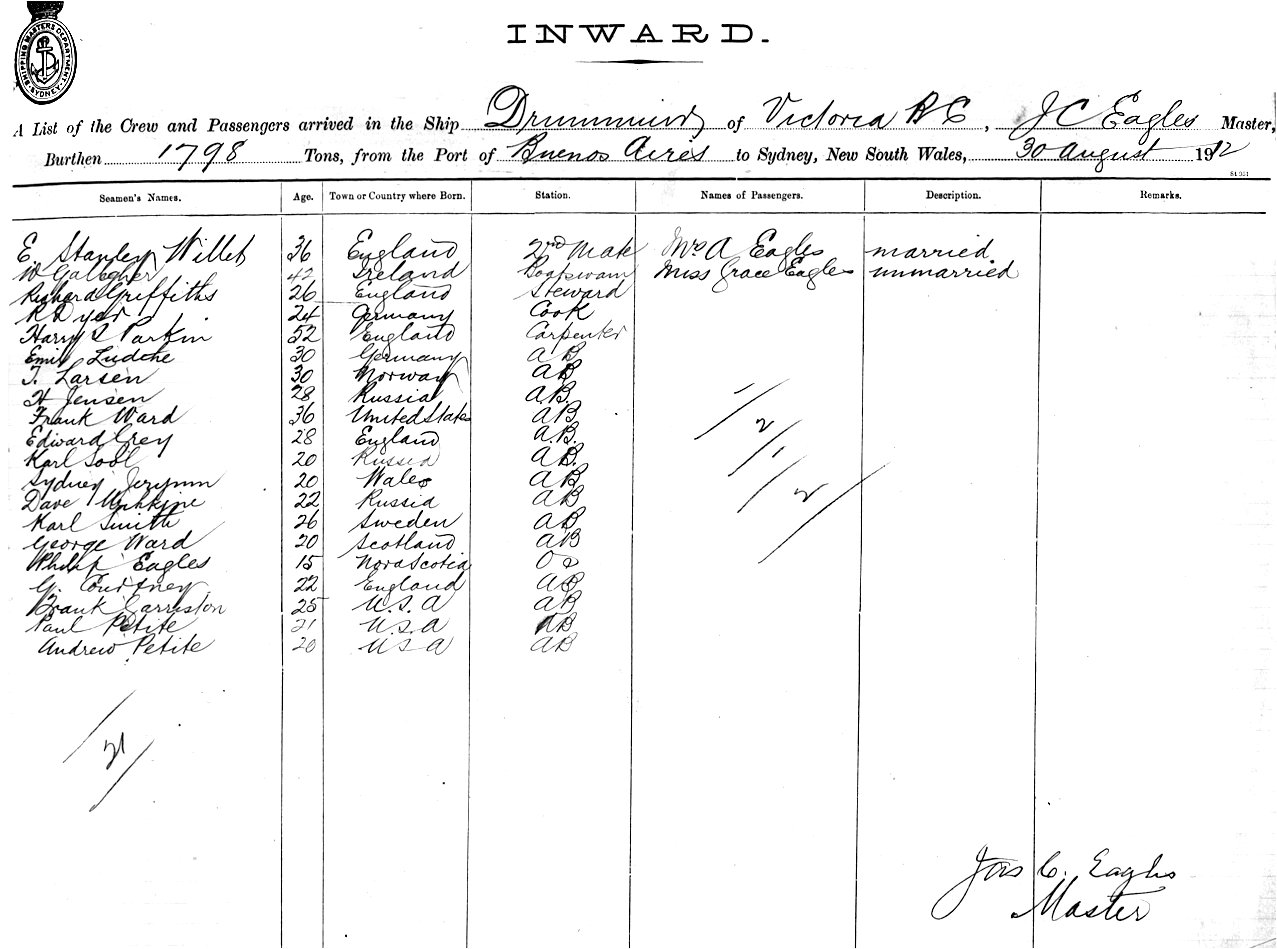 SHIPPING MASTERS DEPARTMENT. SYDNEY.
INWARD.
A List of the Crew and Passengers arrived in the Ship Drummuir of Victoria B C, J C Eagles Master,
Burthen 1798 Tons, from the Port of Buenos Aires to Sydney, New South Wales, 30 August 1912
Seamen's Names. Age. Town or Country where Born. Station. Names of Passengers. Description. Remarks.
E. Stanley Willet 36 England 2nd Mate Mrs A Eagles married
W Gallagher 42 Ireland Boatswain Miss Grace Eagles unmarried
Richard Griffiths 26 England Steward
R Dyer 24 Germany Cook
Harry S Parkin 52 England Carpenter
Emil 30 Germany A B
T. Larsen 30 Norway A B
H Jensen 28 Russia A B.
Frank Ward 36 United States A B.
Edward Grey 28 England A. B.
Karl 20 Russia A B.
Sydney 20 Wales A B
Dave 22 Russia A B
Karl Smith 26 Sweden A B
George Ward 20 Scotland A B
Philip Eagles 15 Nova Scotia O S
G. Courtney 22 England A B
Frank Garriston 25 U. S. A A B
Paul Petite 21 U. S. A A B
Andrew Petite 20 U S A A B
21
Jos C. Eagles
Master